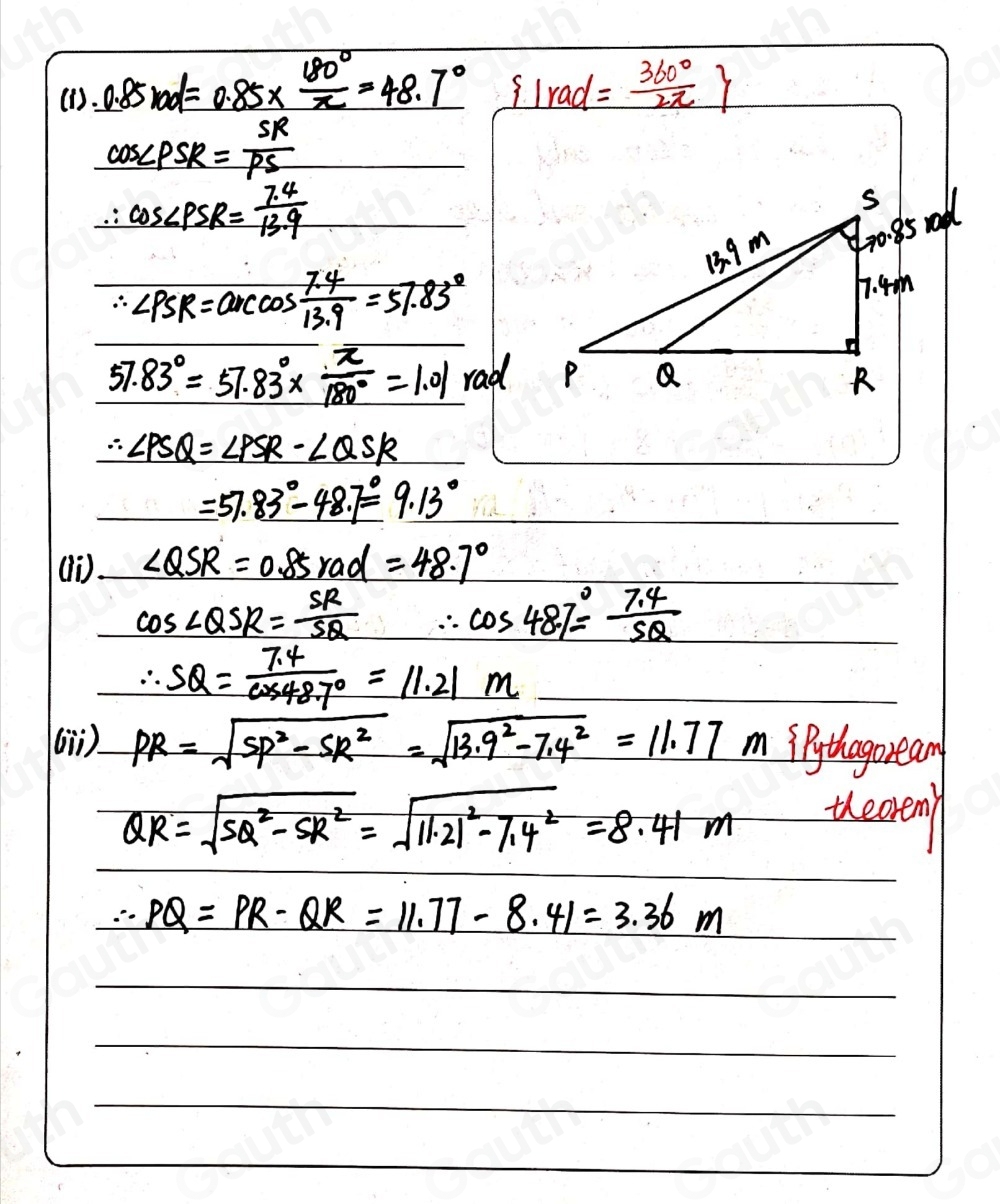 (i). 0.85 rad = 0.85 × 180°/π = 48.7° {1 rad = 360°/2π}
cos∠PSR = SR/PS
∴ cos∠PSR = 7.4/13.9
∴ ∠PSR = arc cos 7.4/13.9 = 57.83°
57.83° = 57.83° × π/180° = 1.01 rad
∴ ∠PSQ = ∠PSR - ∠QSR
= 57.83° - 48.7° = 9.13°
S
0.85 rad
13.9 m
7.4m
P Q R
(ii). ∠QSR = 0.85 rad = 48.7°
cos ∠QSR = SR/SQ ∴ cos 48.7° = 7.4/SQ
∴ SQ = 7.4/cos48.7° = 11.21 m
(iii) PR = √(SP² - SR²) = √(13.9² - 7.4²) = 11.77 m {Pythagorean
theorem}
QR = √(SQ² - SR²) = √(11.21² - 7.4²) = 8.41 m
∴ PQ = PR - QR = 11.77 - 8.41 = 3.36 m
Gauth